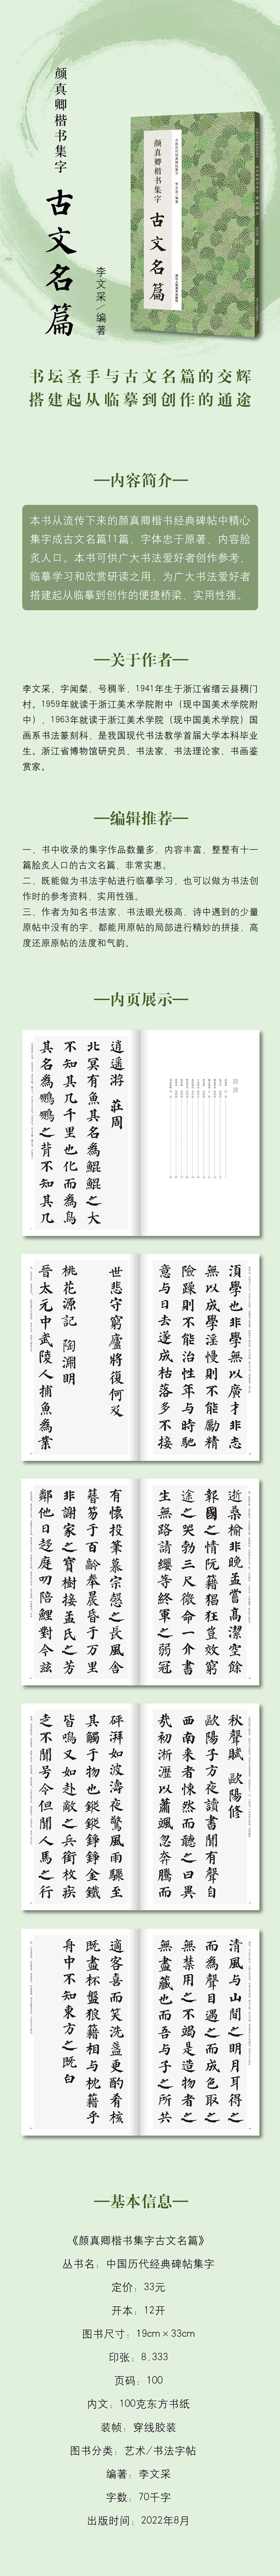 颜真卿楷书集字
古文名篇
李文采/编著
颜真卿楷书集字
古文名篇
书坛圣手与古文名篇的交辉
搭建起从临摹到创作的通途
内容简介
本书从流传下来的颜真卿楷书经典碑帖中精心
集字成古文名篇11篇，字体忠于原著，内容脍
炙人口。本书可供广大书法爱好者创作参考、
临摹学习和欣赏研读之用，为广大书法爱好者
搭建起从临摹到创作的便捷桥梁，实用性强。
关于作者
李文采，字闻粲，号稠峯，1941年生于浙江省缙云县稠门
村。1959年就读于浙江美术学院附中（现中国美术学院附
中），1963年就读于浙江美术学院（现中国美术学院）国
画系书法篆刻科，是我国现代书法教学首届大学本科毕业
生。浙江省博物馆研究员，书法家、书法理论家、书画鉴
赏家。
编辑推荐
一、书中收录的集字作品数量多，内容丰富，整整有十一
篇脍炙人口的古文名篇，非常实惠。
二、既能做为书法字帖进行临摹学习，也可以做为书法创
作时的参考资料，实用性强。
三、作者为知名书法家，书法眼光极高，诗中遇到的少量
原帖中没有的字，都能用原帖的局部进行精妙的拼接，高
度还原原帖的法度和气韵。
内页展示
目录
逍遥游 莊周
北冥有魚其名為鯤鯤之大
不知其几千里也化而為鳥
其名為鵬鵬之背不知其几
須學也非學無以廣才非志
無以成學淫慢則不能勵精
險躁則不能治性年与時馳
意与日去遂成枯落多不接
世悲守窮廬將復何及
桃花源记 陶渊明
晉太元中武陵人捕魚為業
逝桑榆非晚孟嘗高潔空餘
報國之情阮籍猖狂豈效窮
途之哭勃三尺微命一介書
生無路請纓等終軍之弱冠
有懷投筆慕宗慤之長風舍
簪笏于百齡奉晨昏于万里
非謝家之寶樹接孟氏之芳
鄰他日趍庭叨陪鯉對今兹
秋聲賦 歐陽修
歐陽子方夜讀書聞有聲自
西南来者悚然而聽之曰異
哉初淅瀝以蕭颯忽奔騰而
砰湃如波濤夜驚風雨驟至
其觸于物也鏦鏦錚錚金鐵
皆鳴又如赴敵之兵銜枚疾
走不聞号令但聞人馬之行
清風与山間之明月耳得之
而為聲目遇之而成色取之
無禁用之不竭是造物者之
無盡藏也而吾与子之所共
適客喜而笑洗盏更酌肴核
既盡杯盤狼籍相与枕藉乎
舟中不知東方之既白
基本信息
《颜真卿楷书集字古文名篇》
丛书名：中国历代经典碑帖集字
定价：33元
开本：12开
图书尺寸：19cm×33cm
印张：8.333
页码：100
内文：100克东方书纸
装帧：穿线胶装
图书分类：艺术/书法字帖
编著：李文采
字数：70千字
出版时间：2022年8月